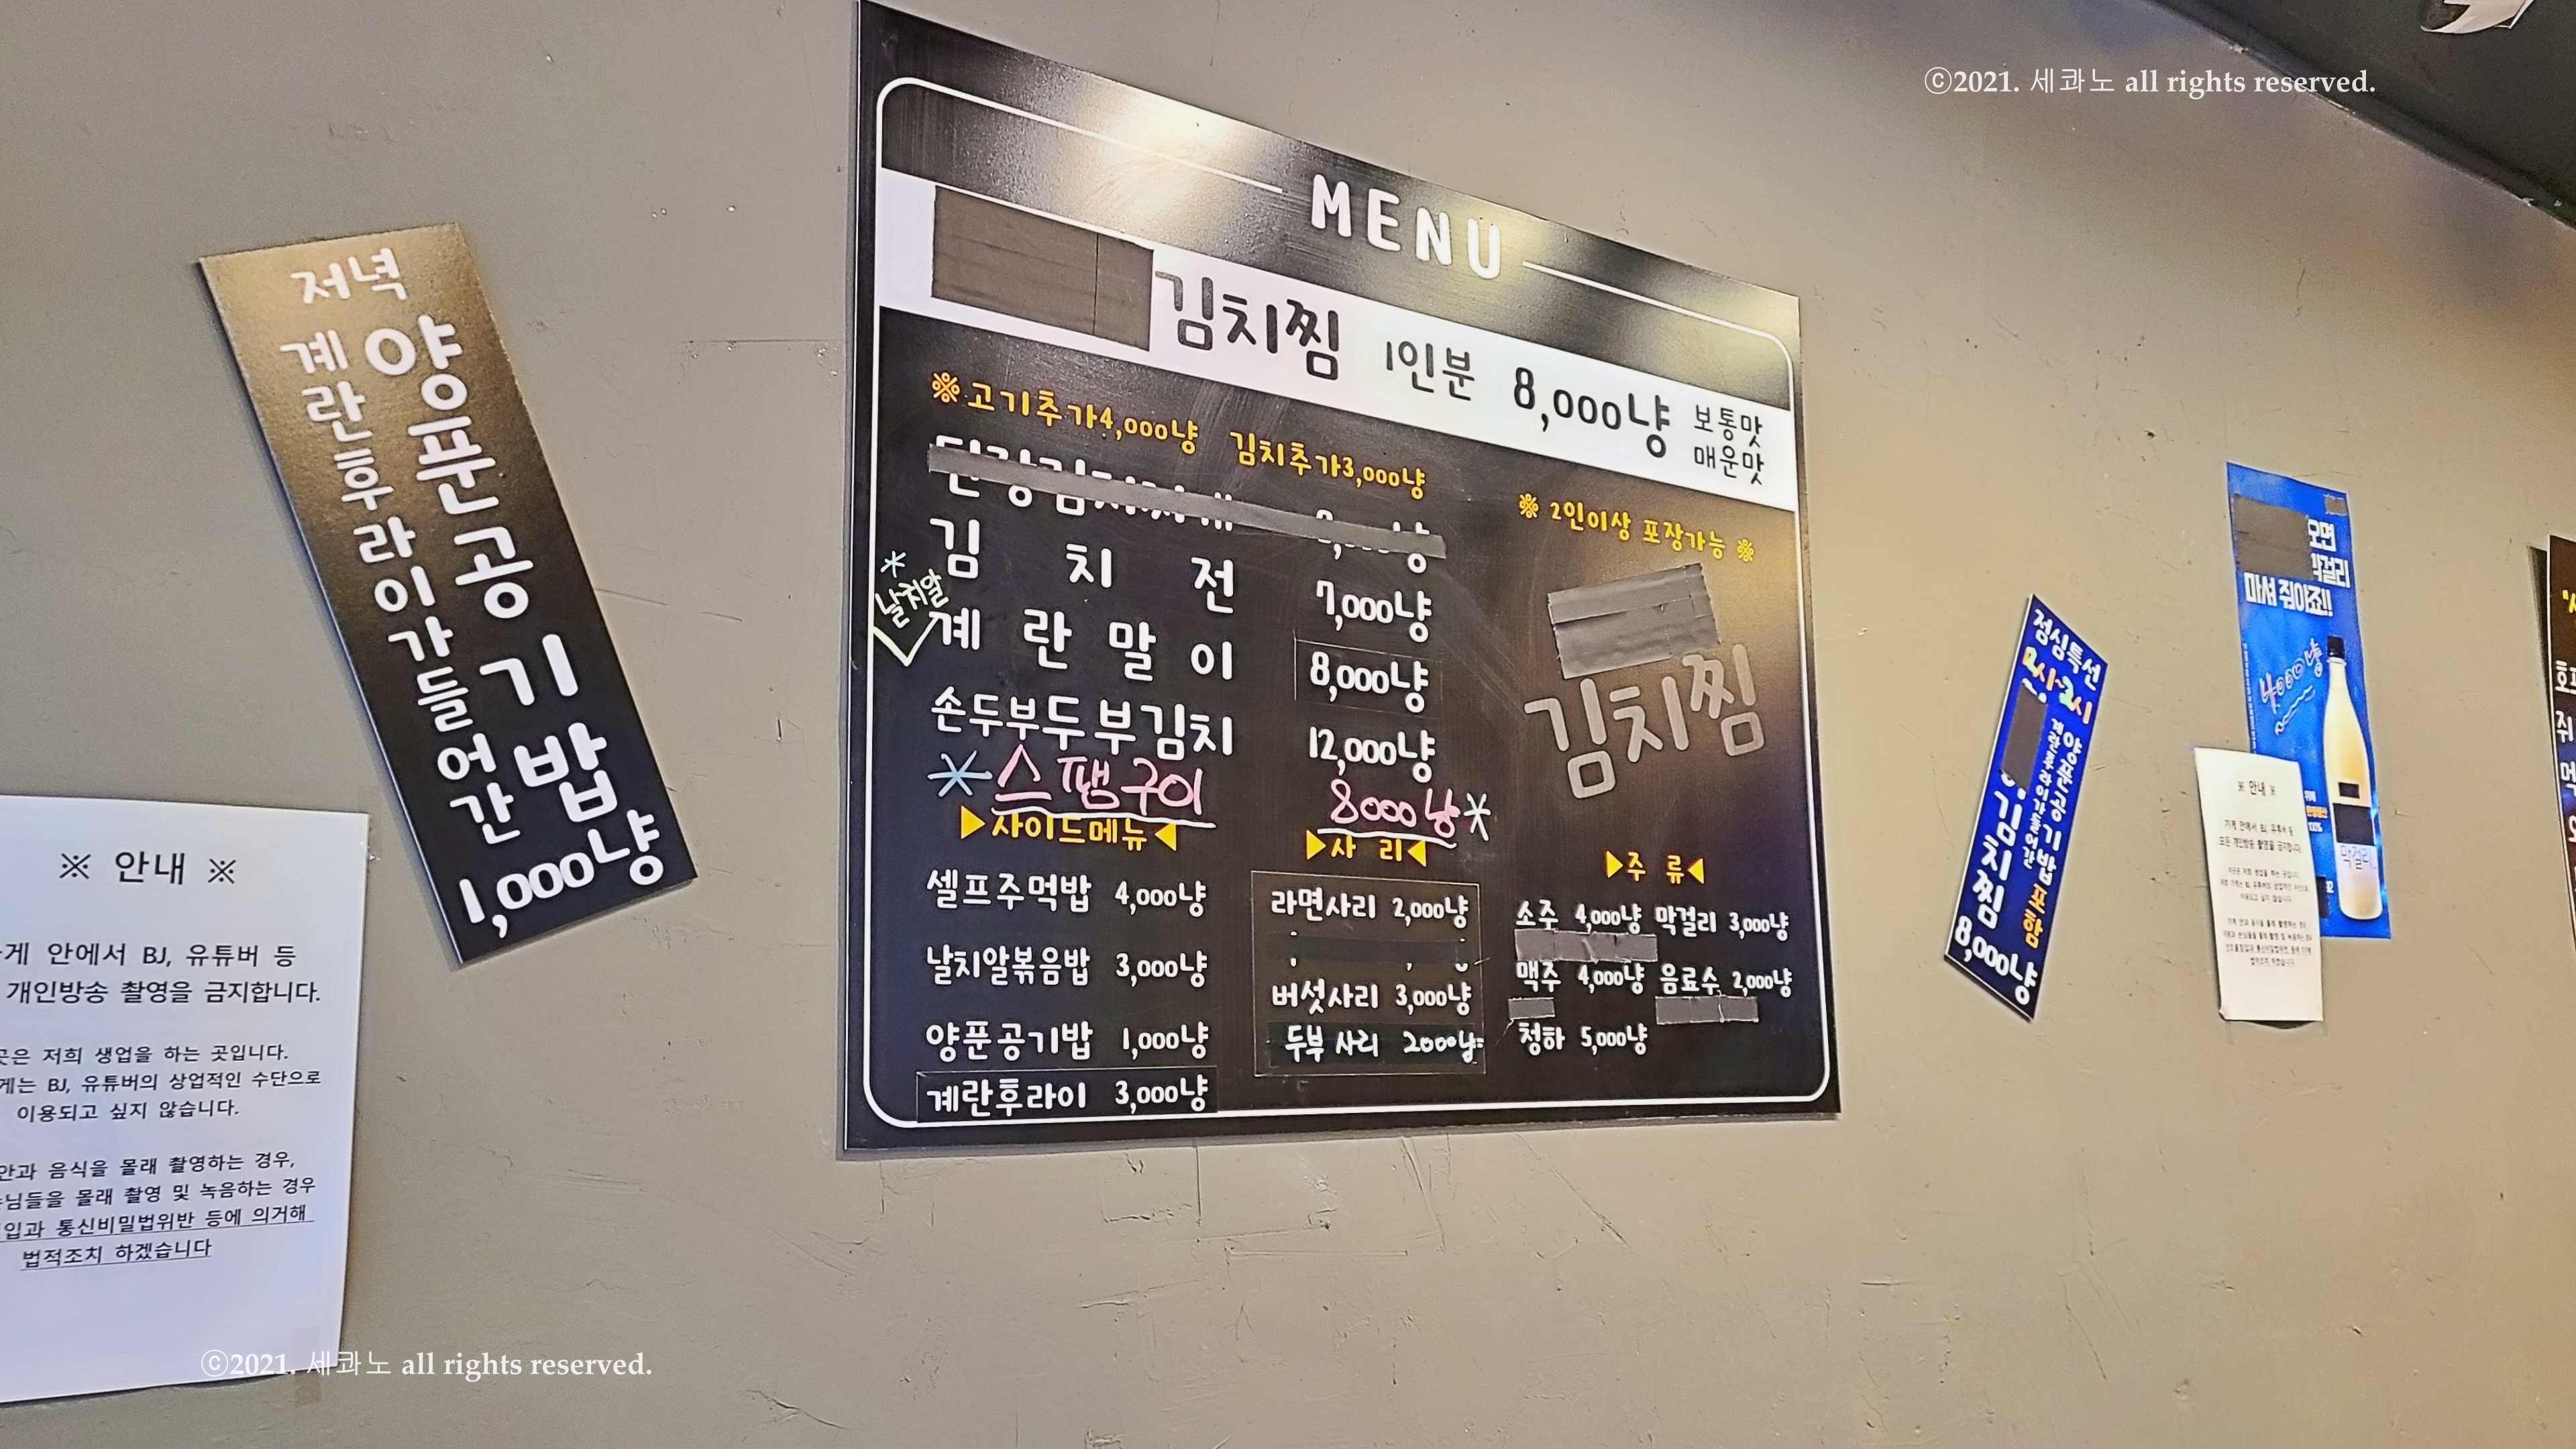 ⓒ2021. 세콰노 all rights reserved.
저녁
양푼공기밥
계란후라이가들어간
1,000냥
※ 안내 ※
게 안에서 BJ, 유튜버 등
개인방송 촬영을 금지합니다.
곳은 저희 생업을 하는 곳입니다.
게는 BJ, 유튜버의 상업적인 수단으로
이용되고 싶지 않습니다.
안과 음식을 몰래 촬영하는 경우,
님들을 몰래 촬영 및 녹음하는 경우
입과 통신비밀법위반 등에 의거해
법적조치 하겠습니다
MENU
김치찜 1인분 8,000냥 보통맛 매운맛
※고기추가4,000냥 김치추가3,000냥
※ 2인이상 포장가능 ※
김치전 7,000냥
*날치알
계란말이 8,000냥
손두부두부김치 12,000냥
*스팸구이 8000냥*
김치찜
▶사이드메뉴◀
셀프주먹밥 4,000냥
날치알볶음밥 3,000냥
양푼공기밥 1,000냥
계란후라이 3,000냥
▶사리◀
라면사리 2,000냥
버섯사리 3,000냥
두부사리 2000냥
▶주류◀
소주 4,000냥 막걸리 3,000냥
맥주 4,000냥 음료수 2,000냥
청하 5,000냥
점심특선
양푼공기밥포함
계란후라이가들어간
김치찜
8,000냥
오면
막걸리
마셔 줘야죠!!
4000냥
막걸리
※ 안내 ※
가게 안에서 BJ, 유튜버 등
모든 개인방송 촬영을 금지합니다.
ⓒ2021. 세콰노 all rights reserved.